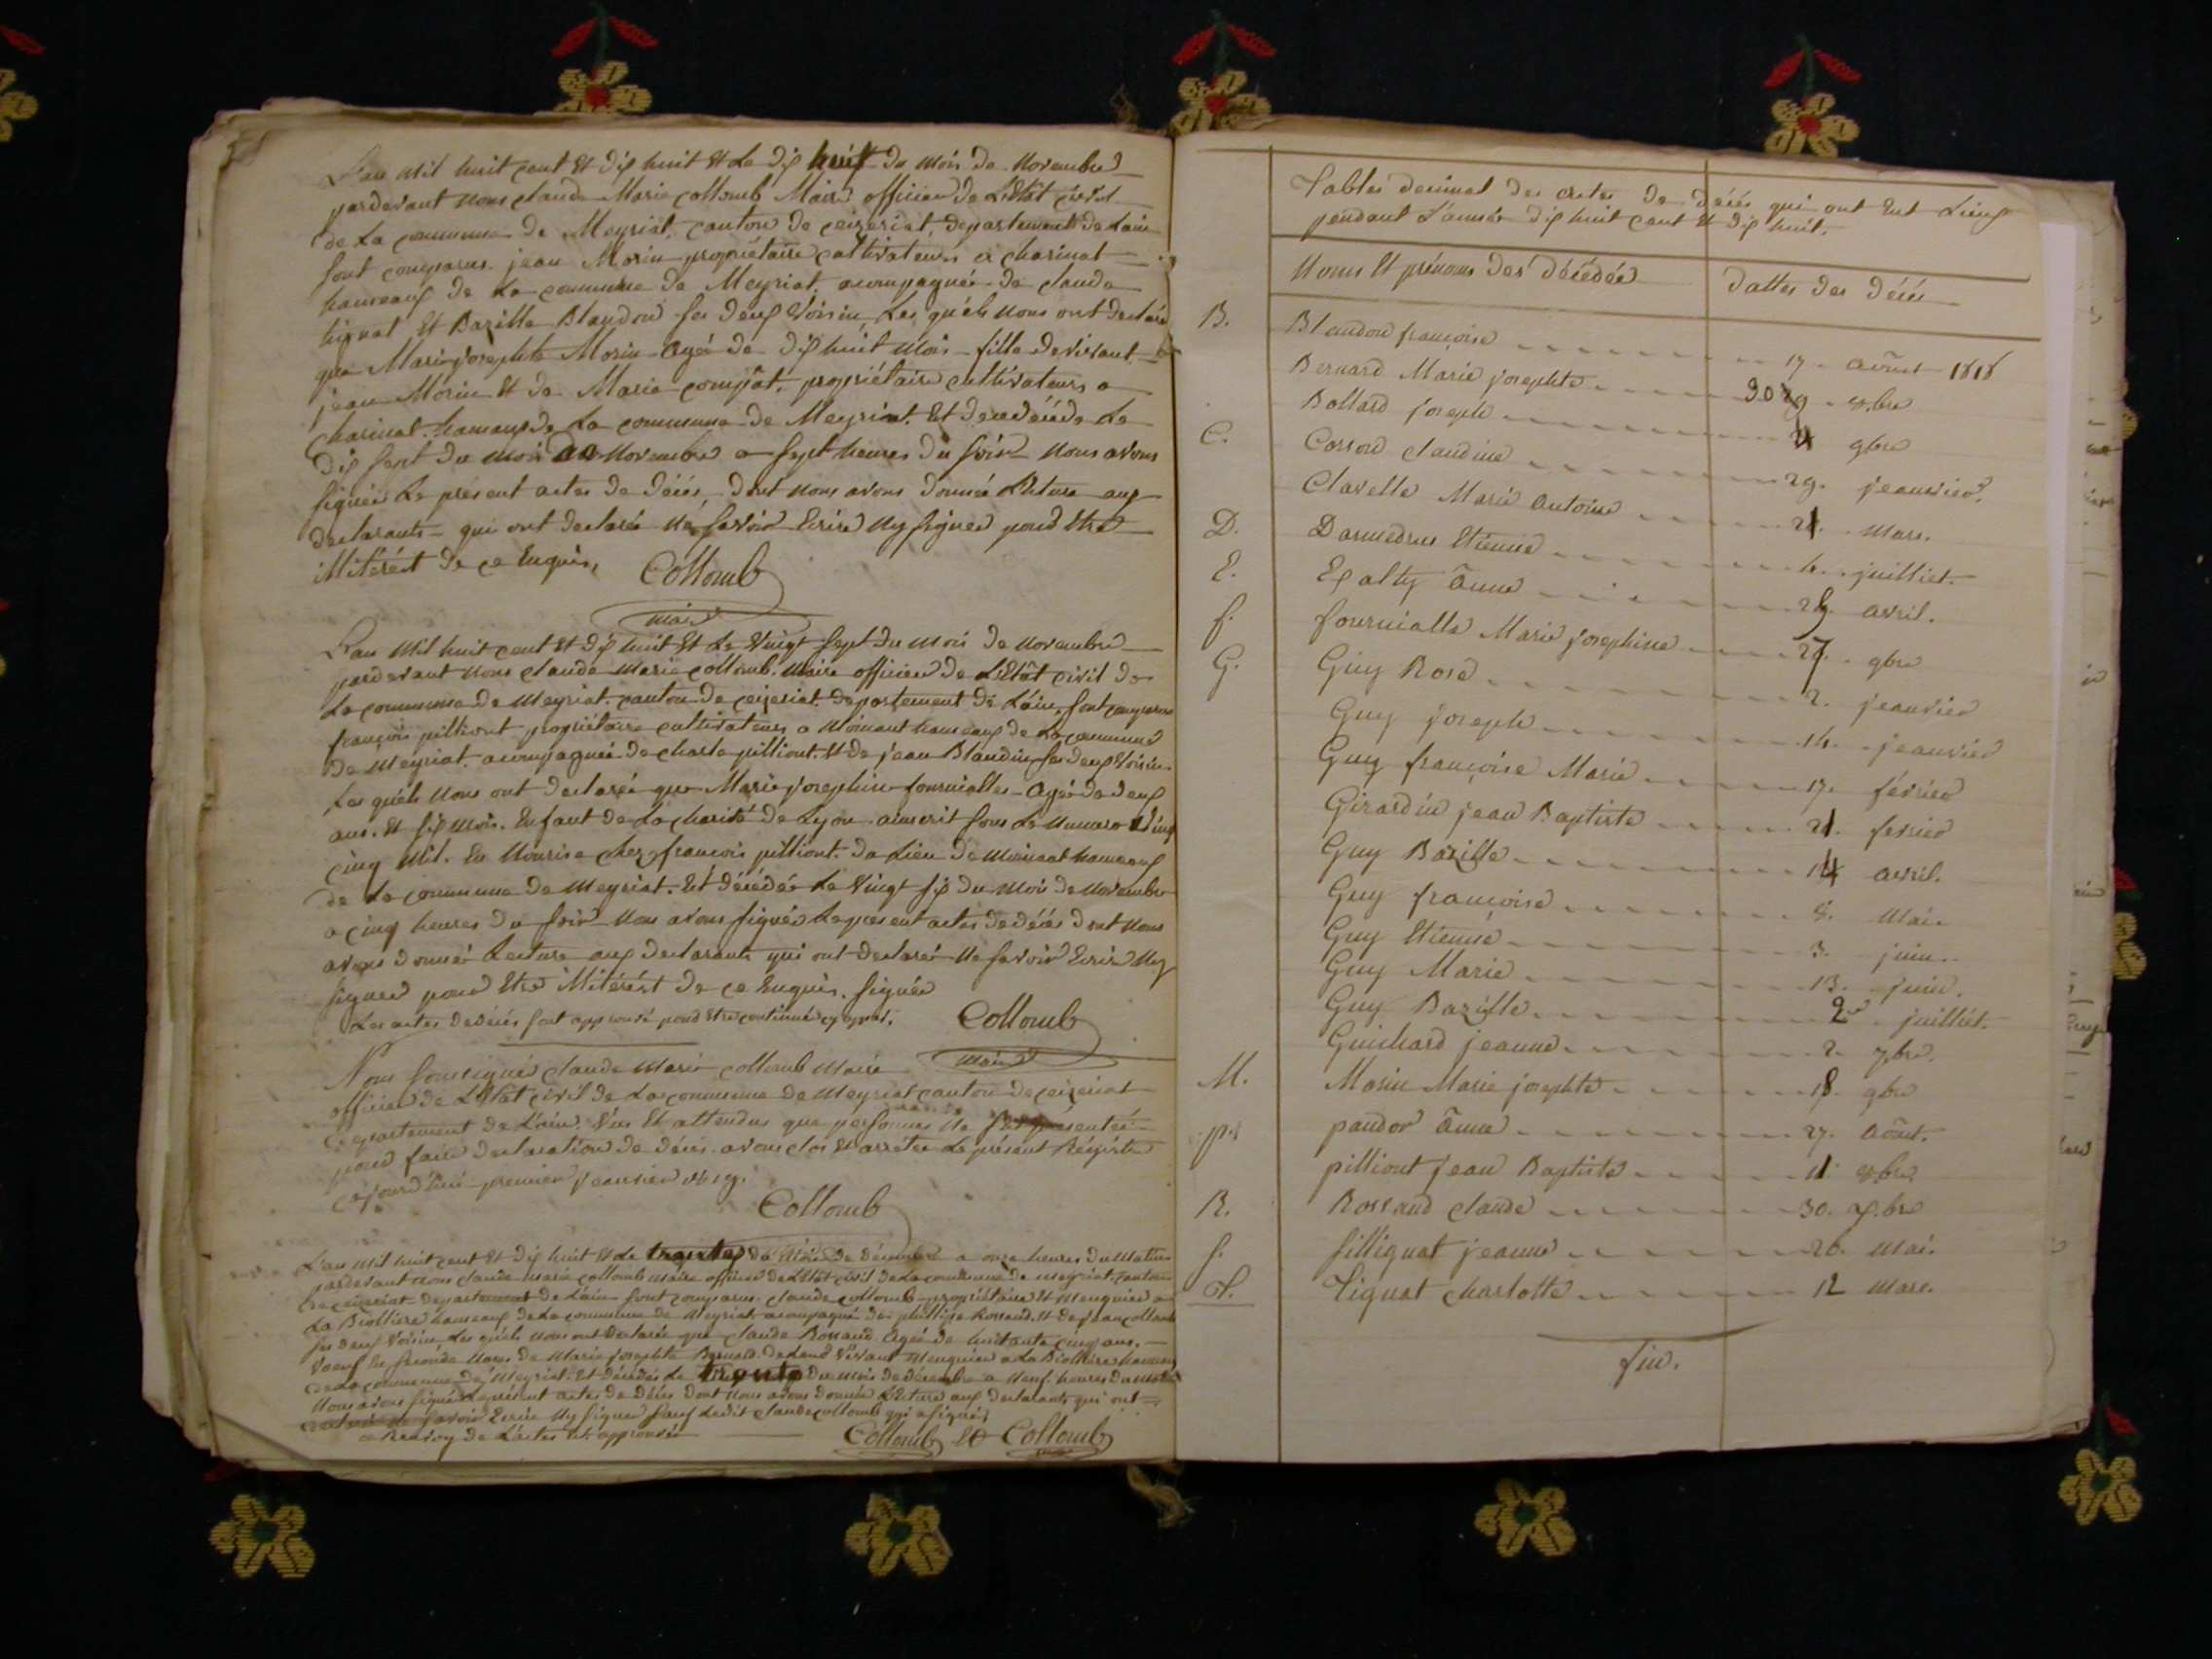 L'an mil huit cent et dix huit et le dix huit du mois de novembre
pardevant nous claude Marie collomb Maire officier de L'Etat civil
de La commune de Meyriat, canton de ceizeriat, departement de Lain
sont comparus jean Morin propriétaire cultivateurs a charinat
hameaux de La commune de Meyriat, acompagnée de claude
tignat Et Bazille Blandon ses deux voisin, Les quels nous ont declaré
que Marie josephte Morin agée de dix huit mois fille de vivant
jean Morin Et de Marie propriétaire cultivateurs a
charinat hameaux de La commune de Meyriat. Et decedéé Le
dix sept du mois de novembre a sept heures du soir nous avons
signée Le présent actes de décés, dont nous avons donnée Lecture aux
declarants qui ont declarée ne savoir Ecrire ny signer pour être
ce Enquis, Collomb
maire
L'an mil huit cent Et dix huit Et Le vingt sept du mois de novembre
pardevant nous claude marie collomb maire officier de L'Etat civil de
La commune de meyriat canton de ceizeriat departement de Lain, sont comparus
françois pilliont propriétaire cultivateurs a moinant hameaux de La commune
de meyriat acompagnée de charle pilliont Et de jean Blandin ses deux voisin
Les quels nous ont declarée que Marie josephine fournialles agée de deux
ans Et six mois. Enfant de La charité de Lyon sous Le numero
cinq mil. En nourise chez françois pilliont du Lieu de moinant hameaux
de La commune de meyriat. Et décédée Le vingt six du mois de novembre
a cinq heures du soir nous avons signée Le present actes de décés dont nous
avons donnée Lecture aux declarants qui ont declarée ne savoir Ecrire ny
signer pour être de ce Enquis. signée
Les actes de décés sont approuvé pour être continué cy aprés. Collomb
maire
Nous soussignée claude marie collomb maire
officier de L'Etat civil de La commune de meyriat canton de ceizeriat
departement de Lain. Vue Et attendue que personnes ne présentée
pour faire declaration de décés avons clos Et arrêter Le présent Régistre
ce jourdhui premier jeanvier 1819.
Collomb
L'an mil huit cent Et dix huit Et Le trente du mois de décembre a onze heures du matin
pardevant nous claude marie collomb maire officier de L'Etat civil de La commune de meyriat canton
de ceizeriat departement de Lain sont comparus claude collomb propriétaire Et meugnier a
La Biolliere hameaux de La commune de Meyriat acompagné de phillipe Rossand Et de jean collomb
ses deux voisin Les quels nous ont declarée que claude Rossand agée de huitante cinq ans.
veuf En seconde noces de Marie josephte Bernard de Leurs vivant meugnier a La Biolliere hameau
de La commune de Meyriat. Et décédée Le trente du mois de décembre a neuf heures du matin
nous avons signée Le présent actes de Décés dont nous avons donnée Lecture aux declarants qui ont
declaré ne savoir Ecrire ny signer sauf Ledit claude collomb qui a signé;
Renvoy de L'actes Et approuvée
Collomb Collomb
Tables decimal des actes de décés qui ont Eut Lieux
pendant L'année dix huit cent Et dix huit.
Noms Et prénoms des décédée Dattes des décés
B. Blandon françoise 17. août 1818
Bernard Marie josephte 30 8.bre
Bollard joseph 4 9bre
C. Corron claudine 29. jeanvier.
Clavelle Marie antoine 21. Mars.
D. Darmedrus Etienne 4. juilliet.
E. Expalty anne avril.
f. fournialle Marie josephine 27. 9bre
G. Guy Rose 2. jeanvier
Guy joseph 14. jeanvier
Guy françoise Marie 17. février
Girardin jean Baptiste 21. fevrier
Guy Bazille 14 avril.
Guy françoise 8. Mai.
Guy Etienne 3. juin.
Guy Marie 13. juin.
Guy Bazille 2 juilliet.
Guichard jeanne 2. 7bre.
M. Morin Marie josephte 18. 9bre
p. pandor anne 27. août.
pilliont jean Baptiste 11. 8bre
R. Rossand claude 30. Xbre
f. fillignat jeanne 20. Mai.
T. Tignat charlotte 12 Mars.
fin.